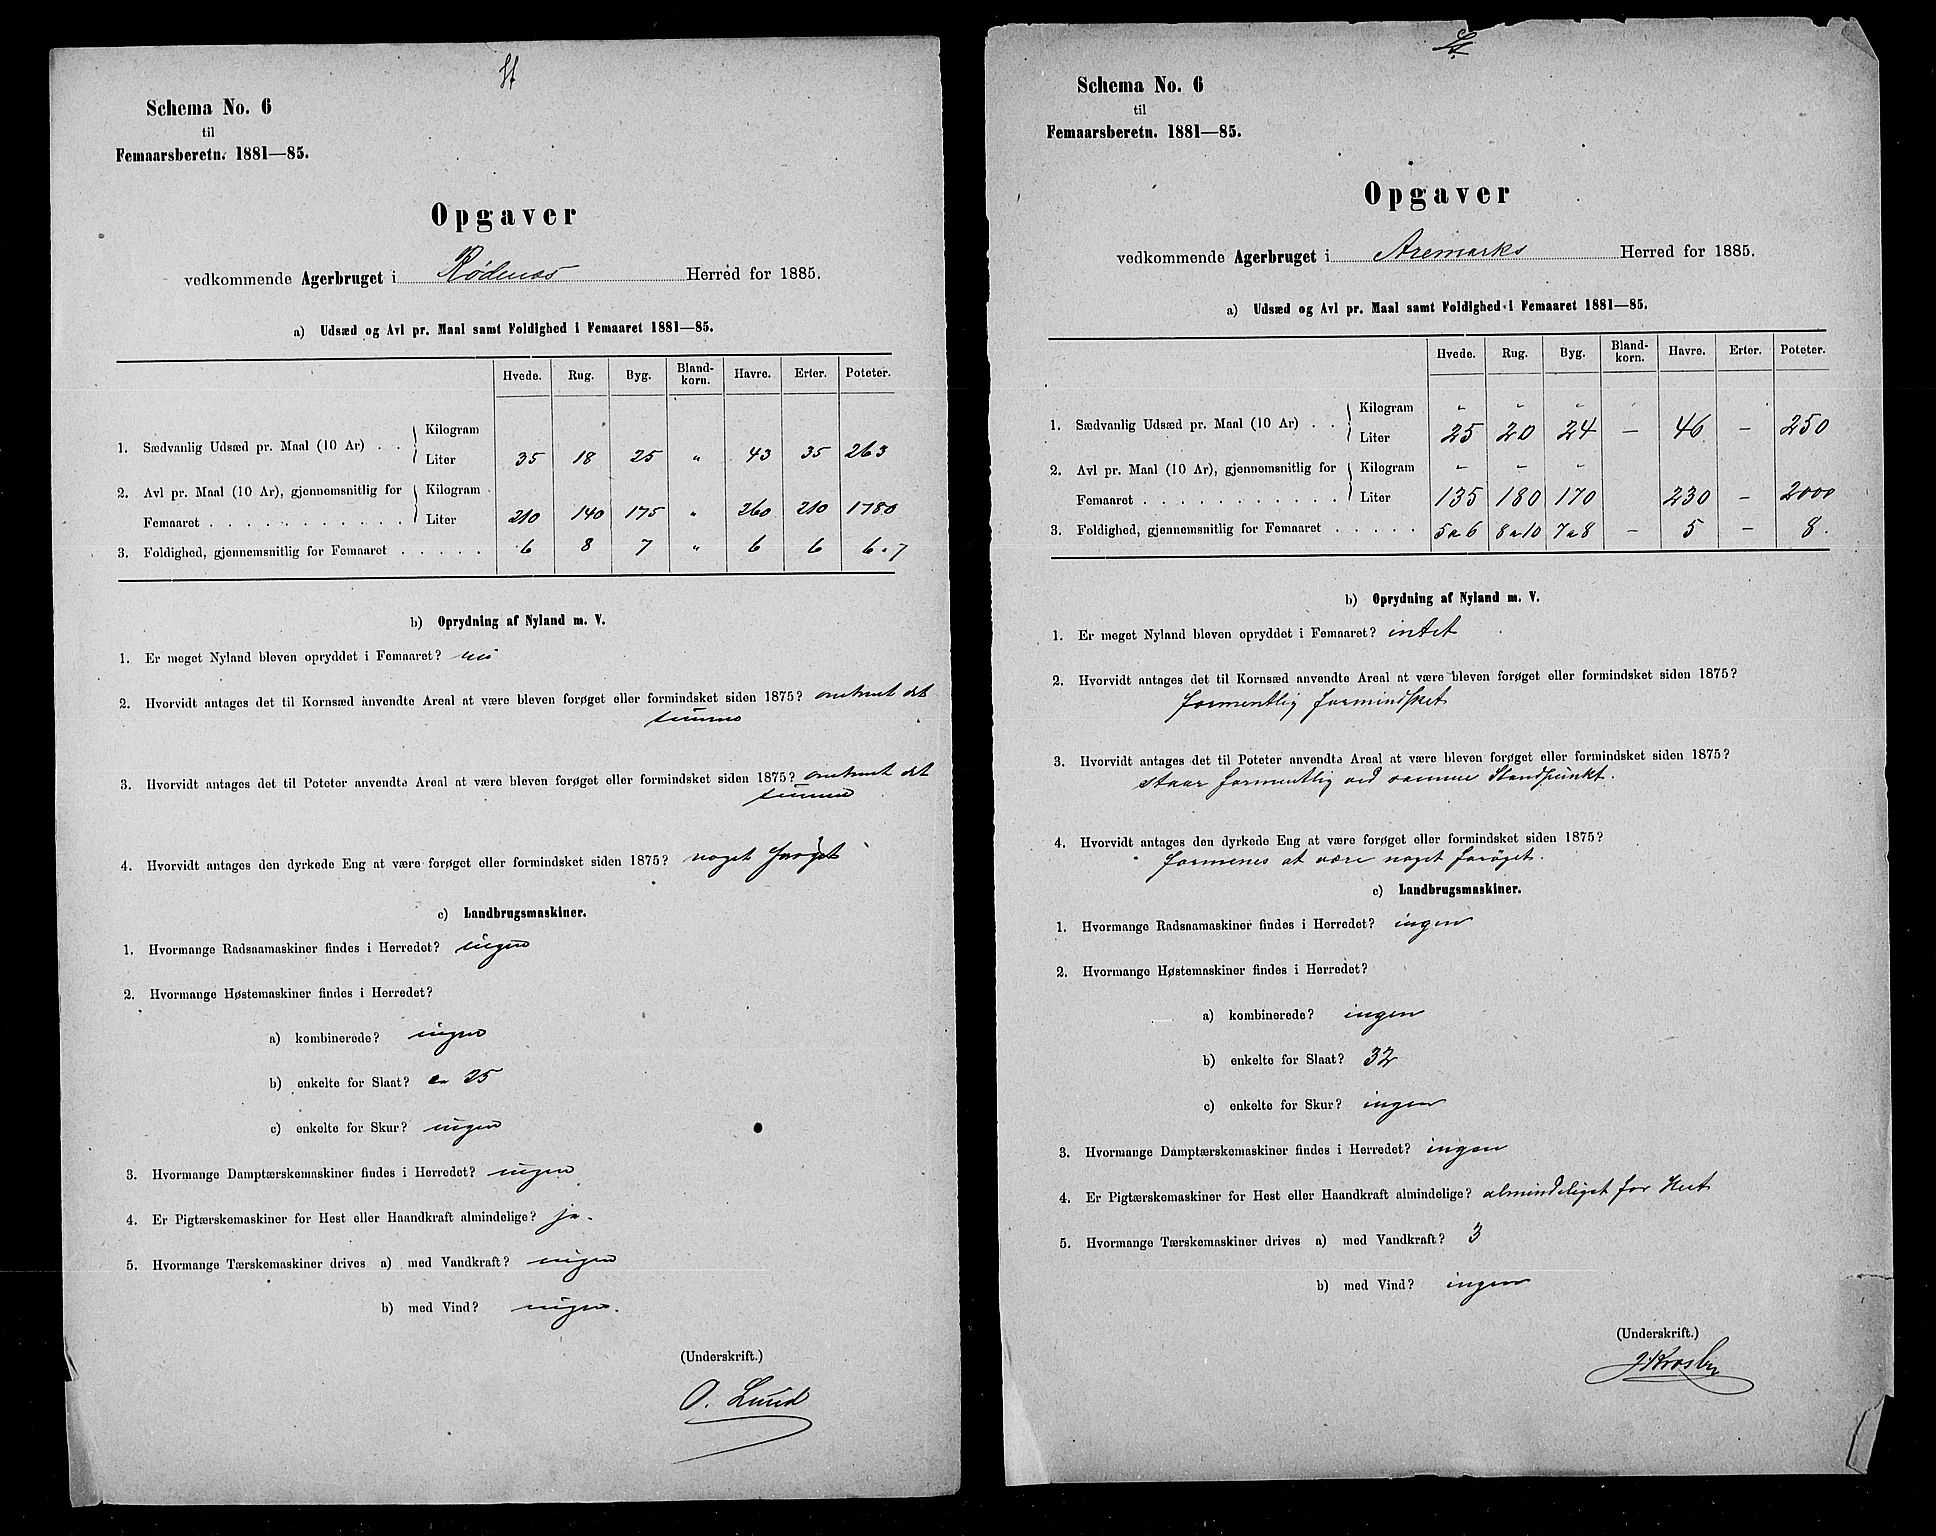 Schema No. 6
til
Femaarsberetn. 1881—85.
Opgaver
vedkommende Agerbruget i Rødenæs Herred for 1885.
a) Udsæd og Avl pr. Maal samt Foldighed i Femaaret 1881—85.
Hvede. Rug. Byg. Bland-korn. Havre. Erter. Poteter.
1. Sædvanlig Udsæd pr. Maal (10 Ar) . . Kilogram
Liter 35 18 25 " 43 35 263
2. Avl pr. Maal (10 Ar), gjennemsnitlig for Kilogram
Femaaret . . . . . . . . . . . Liter 210 140 175 " 260 210 1780
3. Foldighed, gjennemsnitlig for Femaaret . . . . . 6 8 7 " 6 6 6 a 7
b) Oprydning af Nyland m. V.
1. Er meget Nyland bleven opryddet i Femaaret? nei
2. Hvorvidt antages det til Kornsæd anvendte Areal at være bleven forøget eller formindsket siden 1875? omtrent det
samme
3. Hvorvidt antages det til Poteter anvendte Areal at være bleven forøget eller formindsket siden 1875? omtrent det
samme
4. Hvorvidt antages den dyrkede Eng at være forøget eller formindsket siden 1875? noget forøget
c) Landbrugsmaskiner.
1. Hvormange Radsaamaskiner findes i Herredet? ingen
2. Hvormange Høstemaskiner findes i Herredet?
a) kombinerede? ingen
b) enkelte for Slaat? ca 25
c) enkelte for Skur? ingen
3. Hvormange Damptærskemaskiner findes i Herredet? ingen
4. Er Pigtærskemaskiner for Hest eller Haandkraft almindelige? ja.
5. Hvormange Tærskemaskiner drives a) med Vandkraft? ingen
b) med Vind? ingen.
(Underskrift.)
O. Lund
Schema No. 6
til
Femaarsberetn. 1881—85.
Opgaver
vedkommende Agerbruget i Aremarks Herred for 1885.
a) Udsæd og Avl pr. Maal samt Foldighed i Femaaret 1881—85.
Hvede. Rug. Byg. Bland-korn. Havre. Erter. Poteter.
1. Sædvanlig Udsæd pr. Maal (10 Ar) . . Kilogram " " "
Liter 25 20 24 — 46 — 250
2. Avl pr. Maal (10 Ar), gjennemsnitlig for Kilogram " " "
Femaaret . . . . . . . . . . . Liter 135 180 170 230 — 2000
3. Foldighed, gjennemsnitlig for Femaaret . . . . . 5 a 6 8 a 10 7 a 8 — 5 — 8.
b) Oprydning af Nyland m. V.
1. Er meget Nyland bleven opryddet i Femaaret? intet
2. Hvorvidt antages det til Kornsæd anvendte Areal at være bleven forøget eller formindsket siden 1875?
formentlig formindsket
3. Hvorvidt antages det til Poteter anvendte Areal at være bleven forøget eller formindsket siden 1875?
staar formentlig ved samme Standpunkt.
4. Hvorvidt antages den dyrkede Eng at være forøget eller formindsket siden 1875?
formenes at være noget forøget.
c) Landbrugsmaskiner.
1. Hvormange Radsaamaskiner findes i Herredet? ingen
2. Hvormange Høstemaskiner findes i Herredet?
a) kombinerede? ingen
b) enkelte for Slaat? 32
c) enkelte for Skur? ingen
3. Hvormange Damptærskemaskiner findes i Herredet? ingen
4. Er Pigtærskemaskiner for Hest eller Haandkraft almindelige? almindeliget for Hest
5. Hvormange Tærskemaskiner drives a) med Vandkraft? 3
b) med Vind? ingen
(Underskrift.)
J Krosby